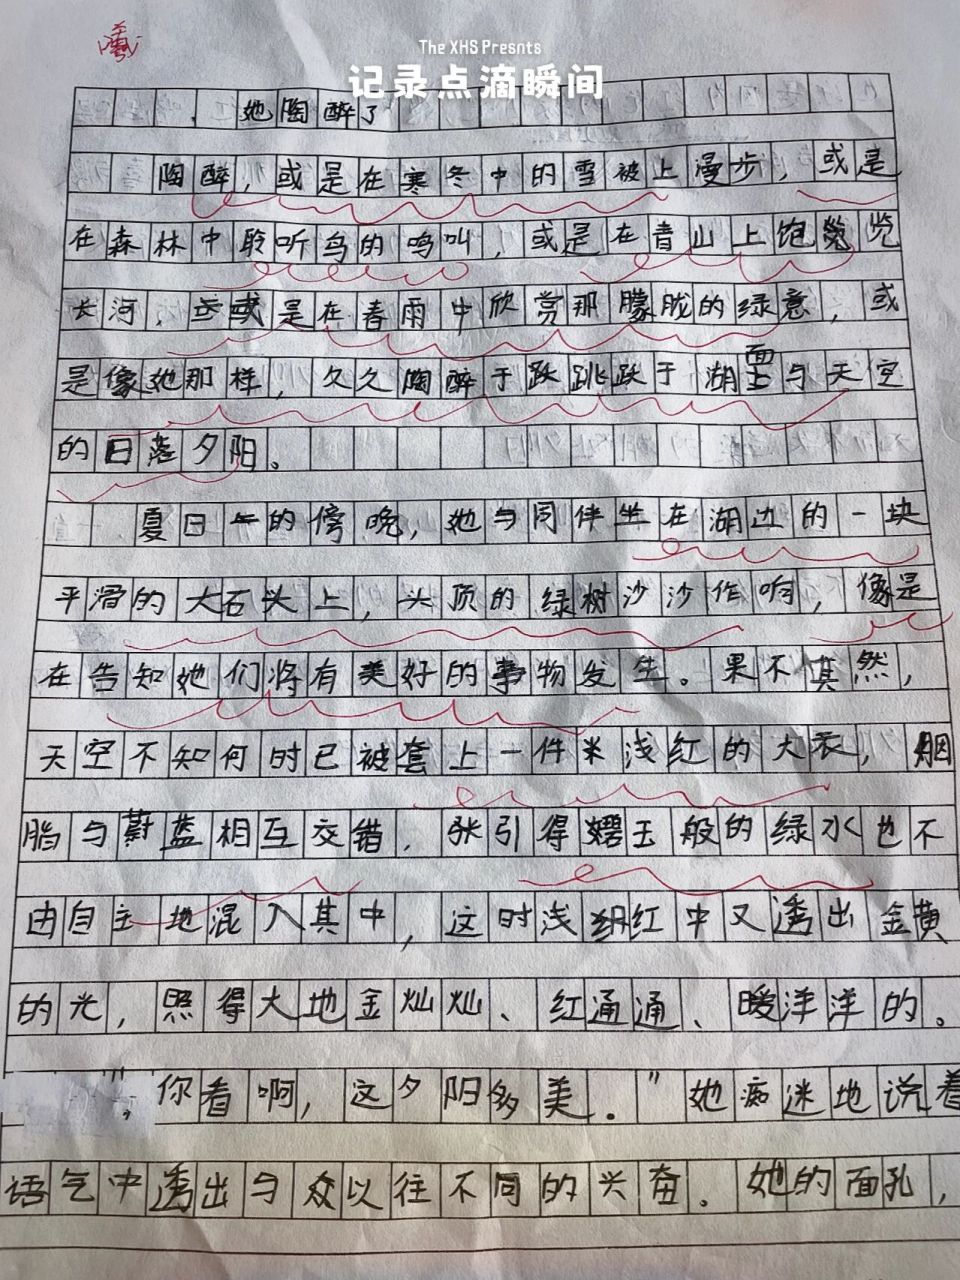 The XHS Presnts
记录点滴瞬间
她陶醉了
陶醉，或是在寒冬中的雪被上漫步，或是
在森林中聆听鸟的鸣叫，或是在青山上饱览
长河，或是在春雨中欣赏那朦胧的绿意，或
是像她那样，久久陶醉于跃于湖面与天空
的日落夕阳。
夏日的傍晚，她与同伴坐在湖边的一块
平滑的大石头上，头顶的绿树沙沙作响，像是
在告知她们将有美好的事物发生。果不其然，
天空不知何时已被套上一件浅红的大衣，胭
脂与蔚蓝相互交错，张引得碧玉般的绿水也不
由自主地混入其中，这时浅红中又透出金黄
的光，照得大地金灿灿、红通通、暖洋洋的。
"你看啊，这夕阳多美。"她痴迷地说着
语气中透出与以往不同的兴奋。她的面孔，